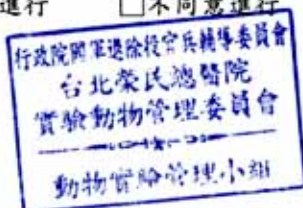 進行 □不同意進行
行政院國軍退除役官兵輔導委員會
台北榮民總醫院
實驗動物管理委員會
動物實驗管理小組